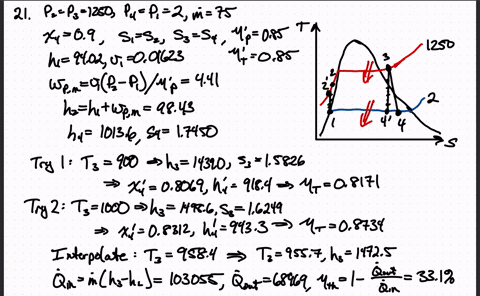 21. P₂=P₃=1250, P₄=P₁=2, ṁ=75
x₄=0.9, S₁=S₂, S₃=S₄, η'p=0.85
h₁=94.02, v₁=0.01623 η'T=0.85
wp,m=v₁(P₂-P₁)/η'p=4.41
h₂=h₁+wp,m=98.43
h₄=1013.6, S₄=1.7450
T
3
1250
2
2'
2
1
4'
4
S
Try 1: T₃=900 ⇒h₃=1439.0, s₃=1.5826
⇒ x₄'=0.8069, h₄'=918.4 ⇒ηT=0.8171
Try 2: T₃=1000 ⇒h₃=1498.6, s₃=1.6249
⇒x₄'=0.8312, h₄'=943.3 ⇒ηT=0.8734
Interpolate: T₃=958.4 ⇒ T₃=955.7, h₃=1472.5
Q̇in=ṁ(h₃-h₂)=103055, Q̇out=68969, ηth=1-Q̇out/Q̇in=33.1%